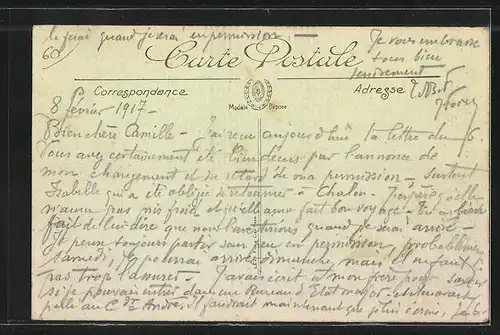 le ferai quand je serai en permission. —
Je vous embrasse
tous bien
tendrement
Carte Postale
Correspondance
Adresse
Modèle Déposé
8 février 1917 —
Bien chère Camille — J'ai reçu aujourd'hui la lettre du 6.
Vous avez certainement été bien déçus par l'annonce de
mon changement et du retard de ma permission — surtout
Isabelle qui a été obligée de retourner à Chalon. — J'espère qu'elle
n'aura pas pris froid et qu'elle aura fait bon voyage — Tu as bien
fait de lui dire que nous l'avertirions quand je serai arrivé —
Je pense toujours partir sans peu en permission, probablement
Samedi, et pourrai arriver dimanche, mais il ne faut
pas trop l'assurer — J'avais écrit à mon frère pour savoir
si je pouvais entrer dans un Bureau d'Etat major
parlé au Cdt André. Il faudrait maintenant que